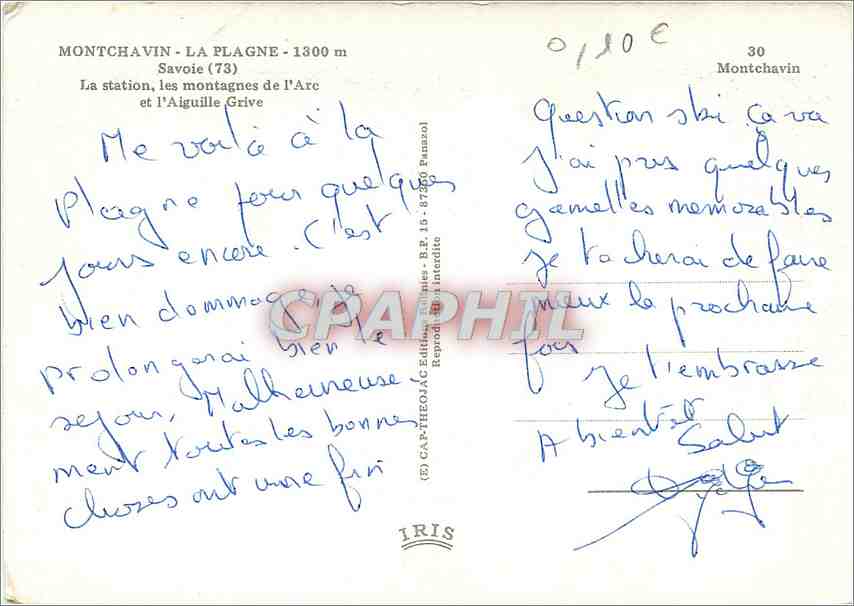 MONTCHAVIN - LA PLAGNE - 1300 m
Savoie (73)
La station, les montagnes de l'Arc
et l'Aiguille Grive
0,10 €
30
Montchavin
Me voilà à la
Plagne pour quelques
jours encore. C'est
bien dommage, je
prolongerai bien le
sejour, Malheureuse-
ment toutes les bonnes
choses ont une fin
(E) CAP-THEOJAC Editions - B.P. 15 - 87350 Panazol
Reproduction interdite
CPAPHIL
IRIS
Question ski ça va
J'ai pris quelques
gamelles memorables
Je tacherai de faire
mieux la prochaine
fois
Je t'embrasse
A bientôt
Salut